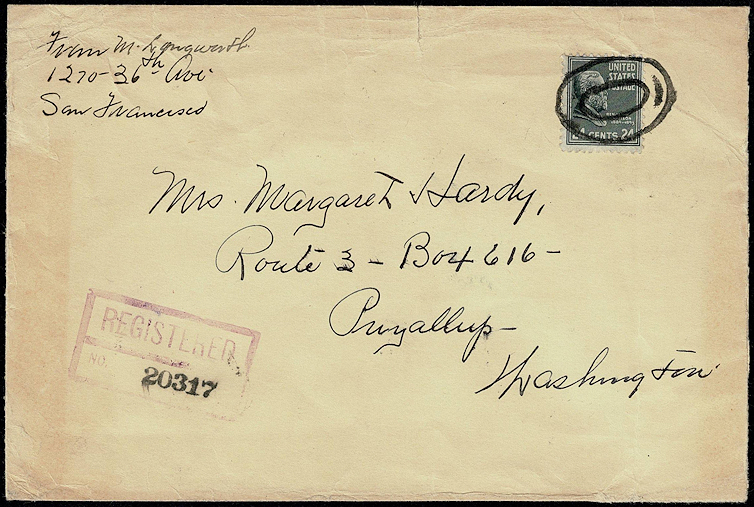 From M. Longworth
1270-36th Ave.
San Francisco
UNITED
STATES
POSTAGE
CENTS 24
Mrs. Margaret Hardy,
Route 3 - Box 616 -
Puyallup -
Washington
REGISTERED
NO.
20317